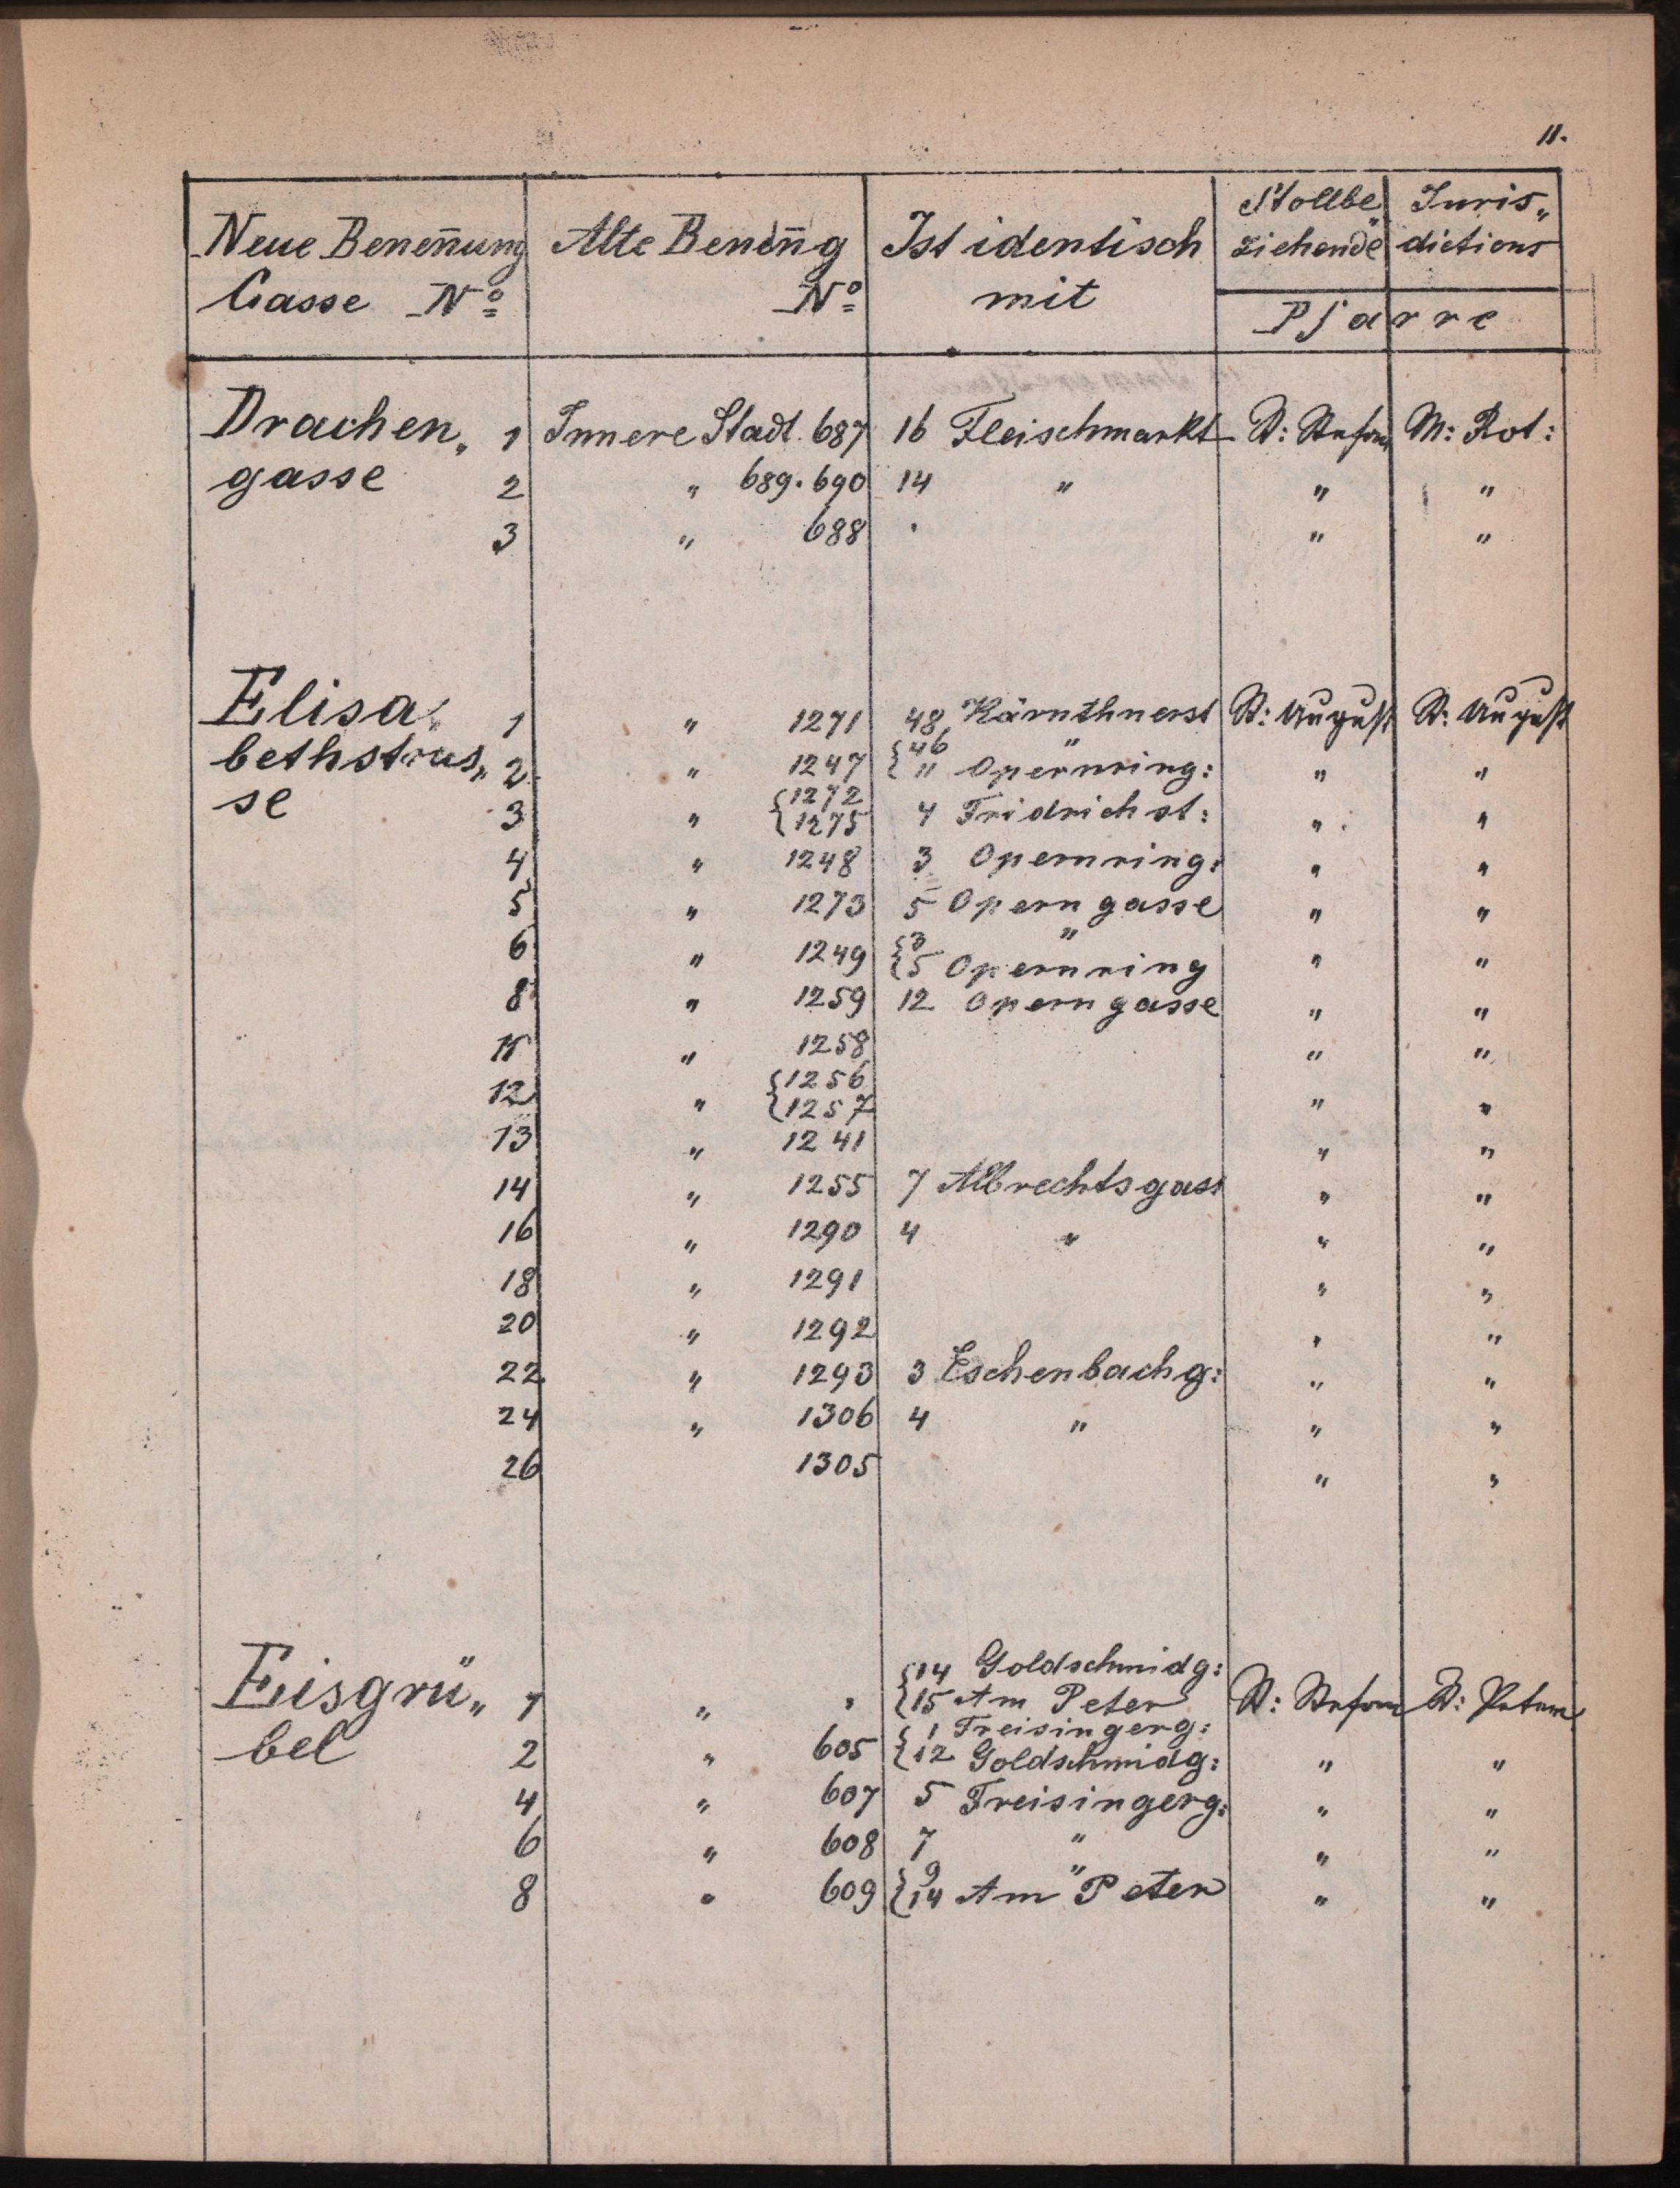 11.
Neue Beneñung Alte Beneñg Ist identisch Stollbe„ Juris„
ziehende dictions
Gasse No No mit
Pfarre
Drachen„ 1 Innere Stadt 687 16 Fleischmarkt St: Stefan M: Rot:
gasse 2 " 689. 690 14 " " "
3 " 688 . " "
Elisa„ 1 " 1271 48 Kärnthnerst St: August St: August
bethstras„ 2 " 1247 { 46 " " "
11 Opernring:
se 3 " { 1272 4 Fridrichst: " "
{ 1275
4 " 1248 3 Opernring: " "
5 " 1273 5 Operngasse " "
6 " 1249 { 3 " " "
{ 5 Opernring
8 " 1259 12 Operngasse " "
" 1258 " "
12 " { 1256 " "
{ 1257
13 " 1241 " "
14 " 1255 7 Albrechtsgass " "
16 " 1290 4 " " "
18 " 1291 " "
20 " 1292 " "
22 " 1293 3 Eschenbachg: " "
24 " 1306 4 " " "
26 1305 " "
{ 14 Goldschmidg:
Eisgrü„ 1 " " { 15 Am Peter St: Stefan St: Peter
{ 1 Freisingerg:
bel 2 " 605 { 12 Goldschmidg: " "
4 " 607 5 Freisingerg: " "
6 " 608 7 " " "
8 " 609 { 9 " " "
{ 14 Am Peter